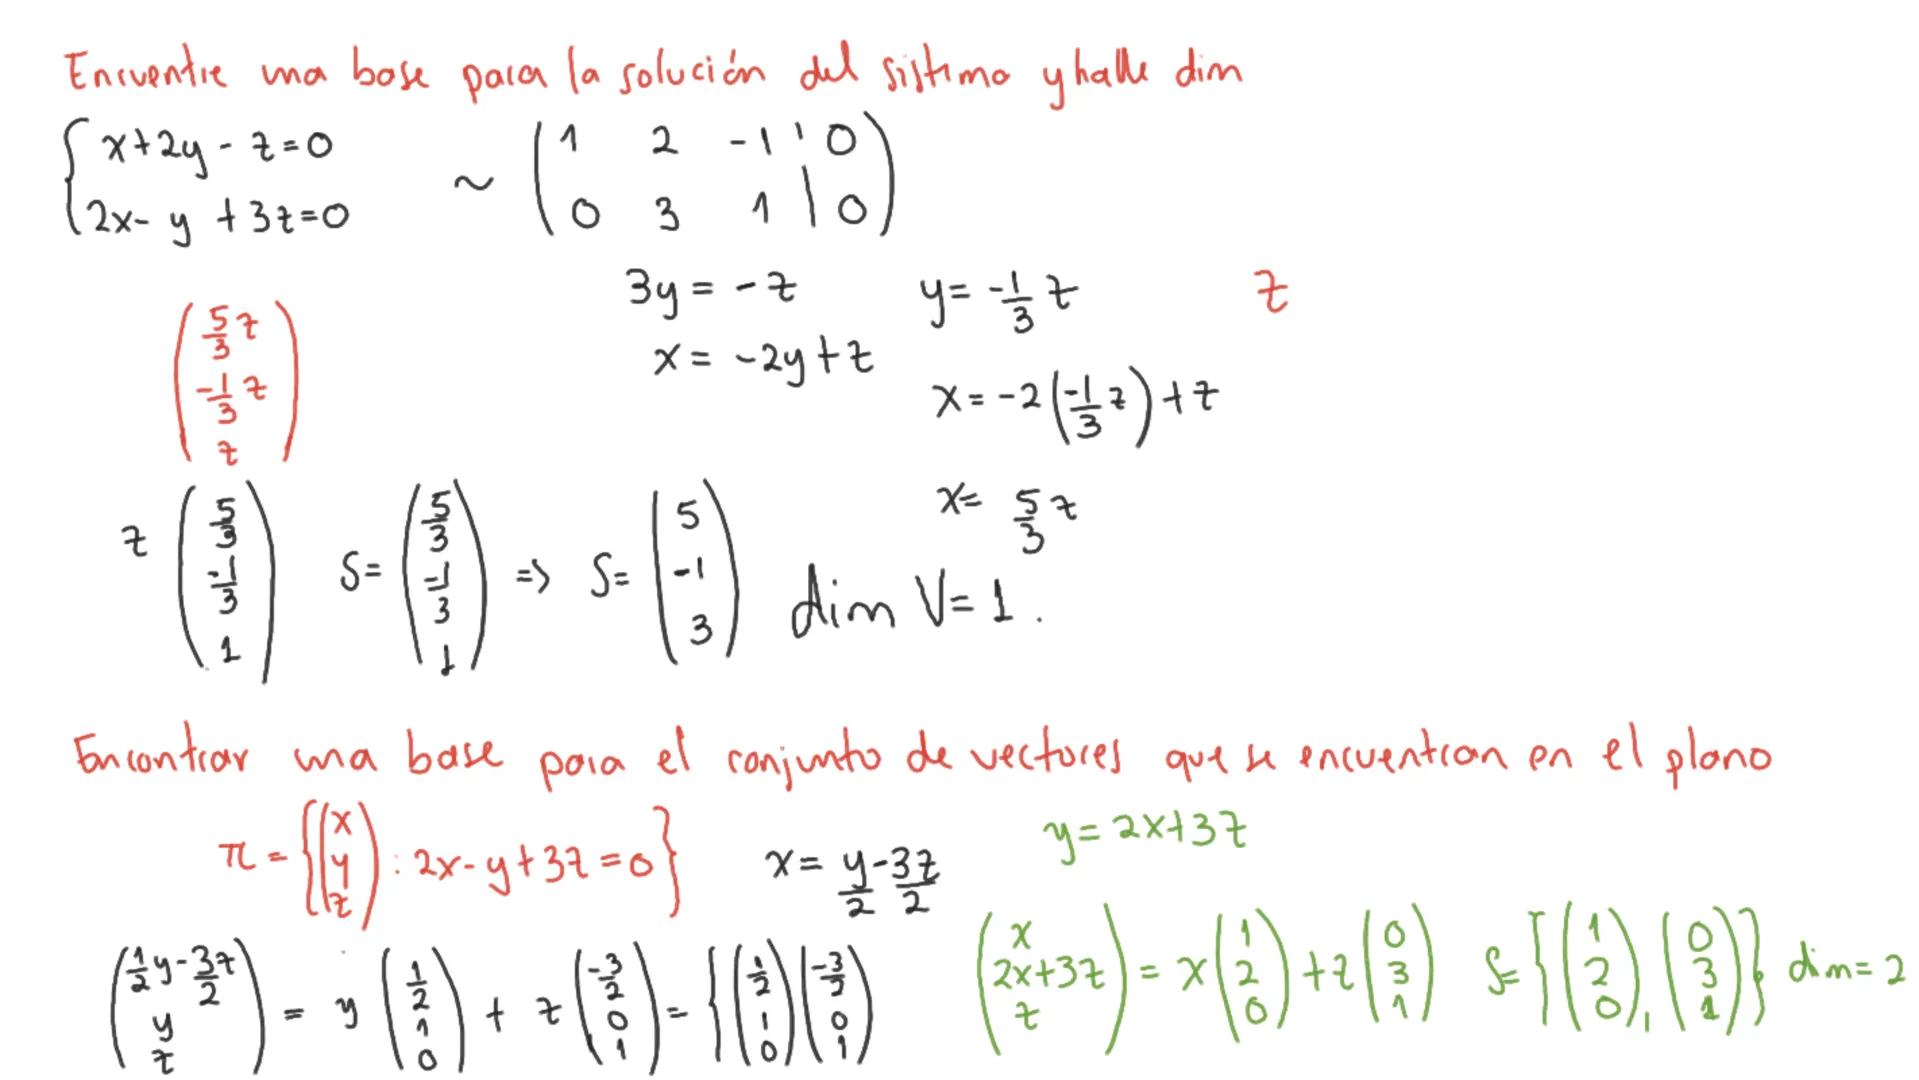 Encuentre una base para la solución del sistema y halle dim
{ x+2y-z=0
2x-y+3z=0
~ ( 1 2 -1 | 0
0 3 1 | 0 )
3y = -z y = -1/3 z z
x = -2y+z
x = -2(-1/3 z)+z
x = 5/3 z
( 5/3 z
-1/3 z
z )
z ( 5/3 -1/3 1 ) S= ( 5/3 -1/3 1 ) => S= ( 5 -1 3 ) dim V=1.
Encontrar una base para el conjunto de vectores que se encuentran en el plano
π = { ( x y z ) : 2x-y+3z=0 } x = y/2 - 3z/2 y = 2x+3z
( 1/2 y - 3z/2 y z ) = y ( 1/2 1 0 ) + z ( -3/2 0 1 ) = { ( 1/2 1 0 ) ( -3/2 0 1 )
( x 2x+3z z ) = x ( 1 2 0 ) + z ( 0 3 1 ) S= { ( 1 2 0 ), ( 0 3 1 ) } dim=2